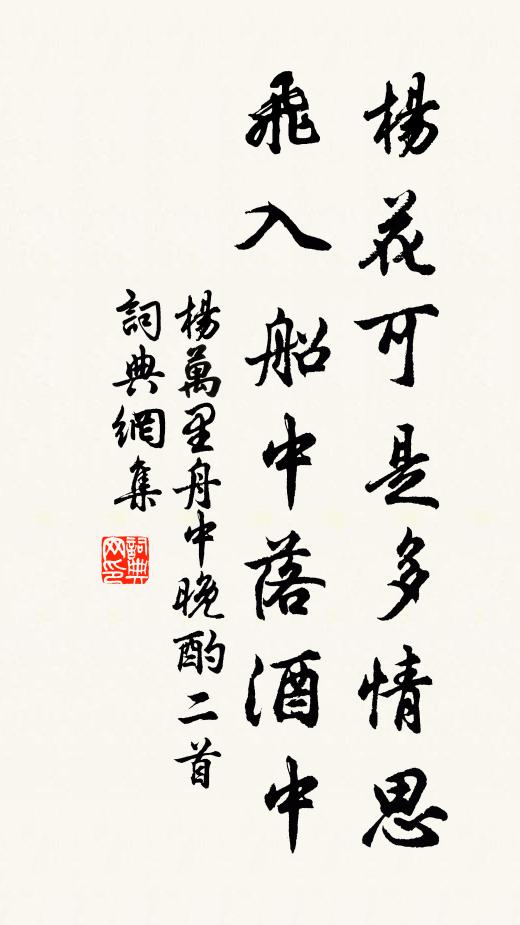 楊花可是多情思
飛入船中落酒中
楊萬里舟中晚酌二首
詞典網集
詞典网印